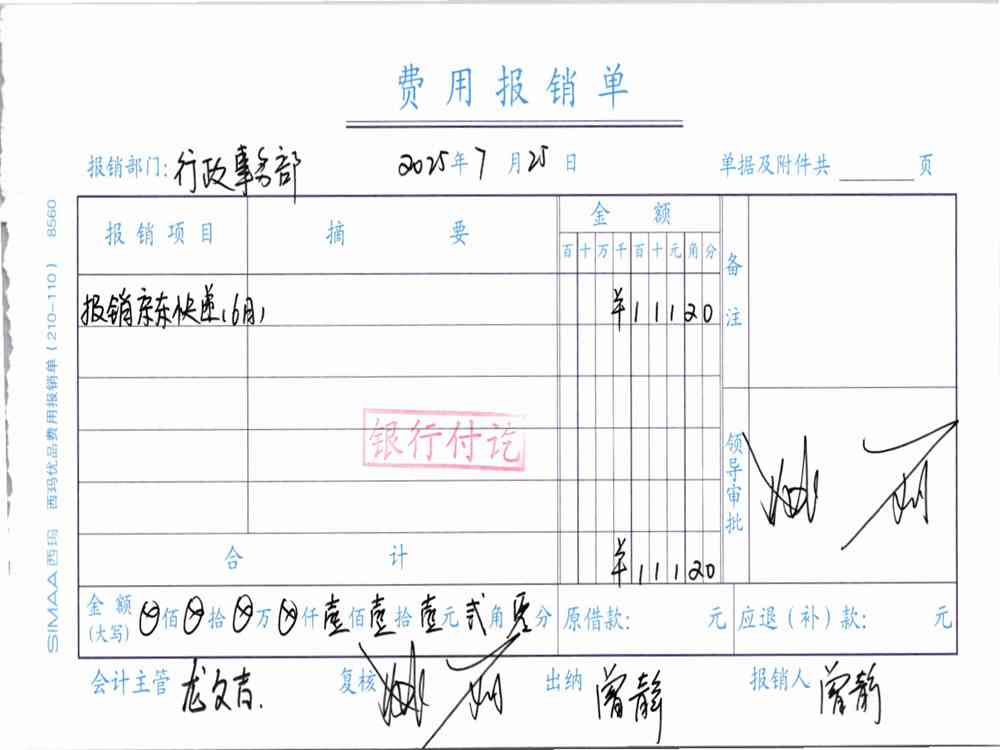 费用报销单
报销部门:行政事务部 2025年7月25日 单据及附件共 页
报销项目 摘要 金额 备注
百十万千百十元角分
报销京东快递(6月) ¥11120
银行付讫
领导审批
合计 ¥11120
金额(大写) ⊗佰⊗拾⊗万⊗仟壹佰壹拾壹元贰角零分 原借款: 元 应退(补)款: 元
会计主管 龙文吉. 复核 出纳 曾静 报销人 曾静
SIMAA西玛 西玛优品费用报销单(210-110) 8560